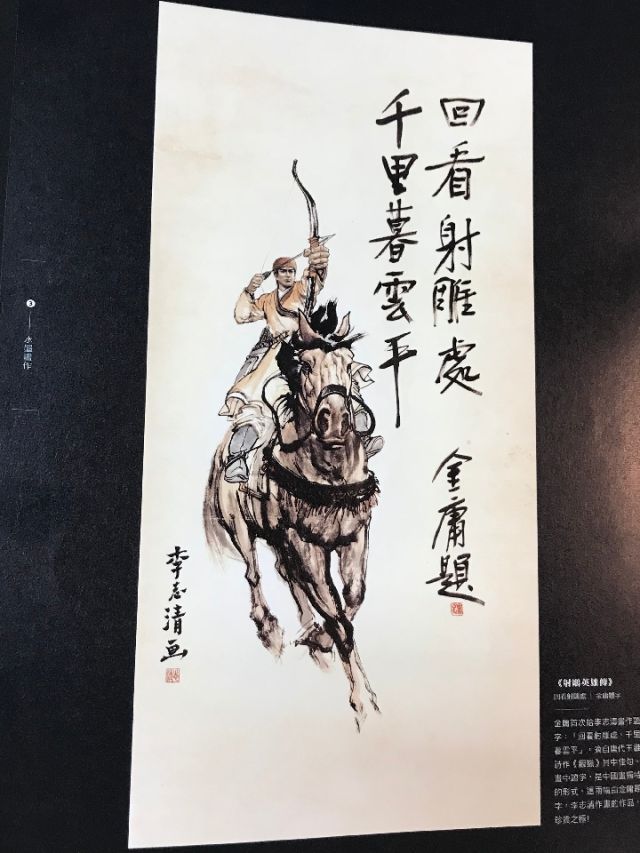 回看射雕處
千里暮雲平
金庸題
李志清画
3
水墨畫作
《射鵰英雄傳》
回看射鵰處｜金庸題字
金庸首次給李志清畫作題
字：「回看射雕處，千里
暮雲平」。摘自唐代王維
詩作《觀獵》其中佳句。
畫中題字，是中國畫獨特
的形式，這兩幅由金庸題
字，李志清作畫的作品，
珍貴之極！